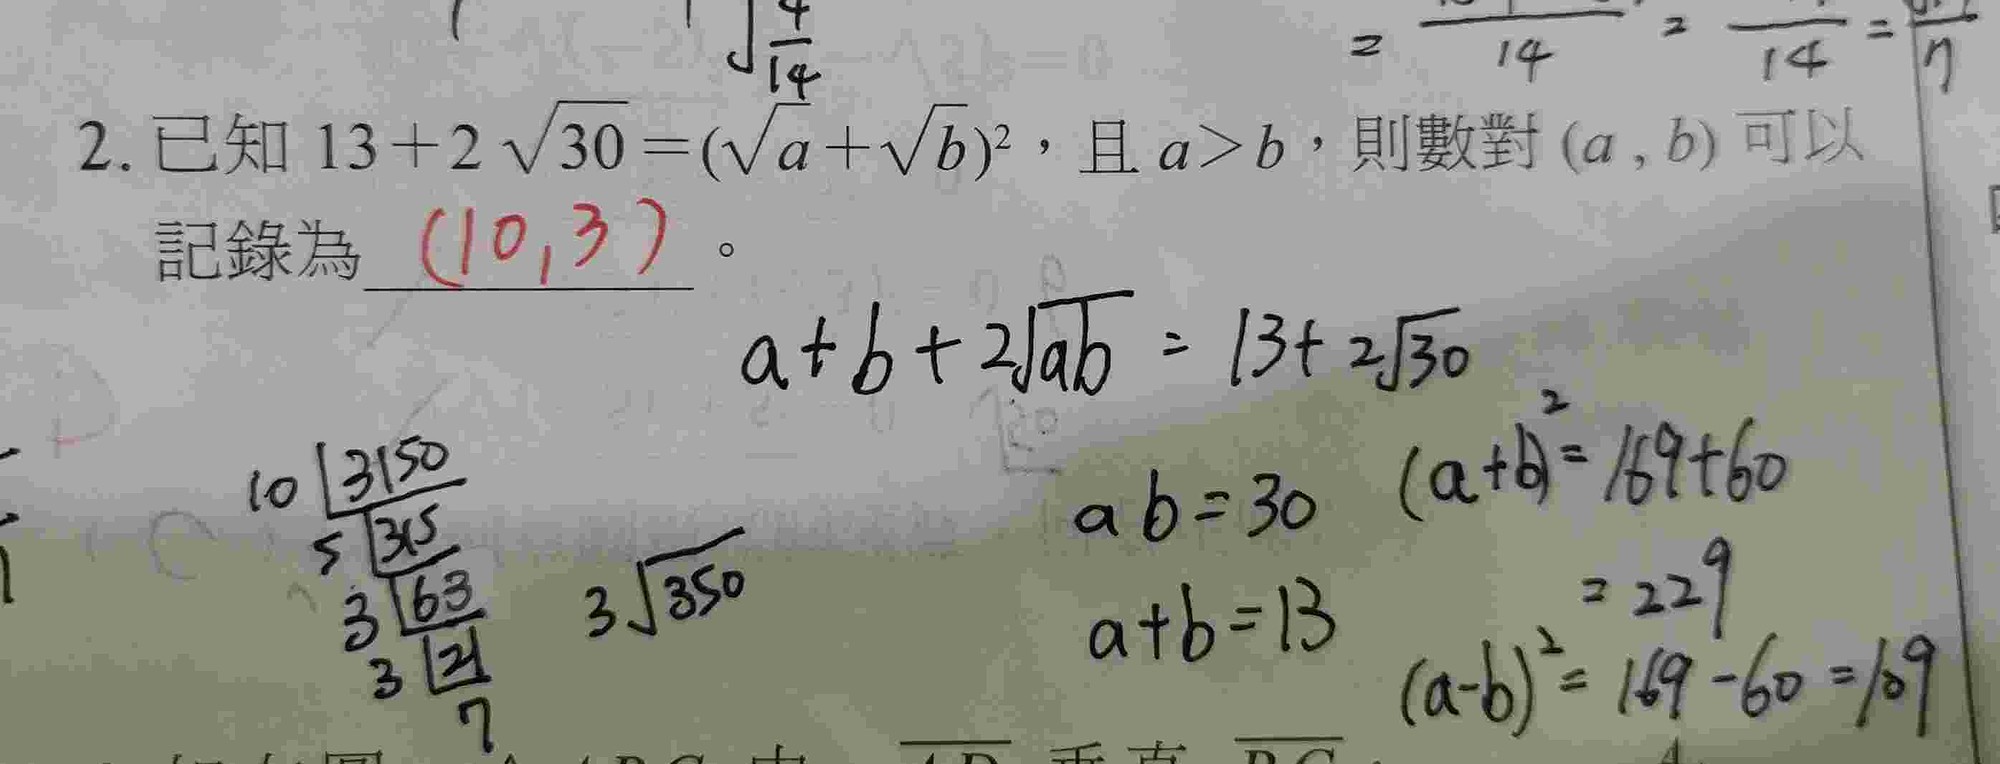 √4/14
= /14 = /14 = /7
2. 已知 13+2√30=(√a+√b)²，且 a>b，則數對 (a , b) 可以
記錄為 (10,3) 。
a+b+2√ab = 13+2√30
10 3150
5 315
3 63
3 21
7
3√350
ab=30
a+b=13
(a+b)²=169+60
=229
(a-b)²=169-60=109